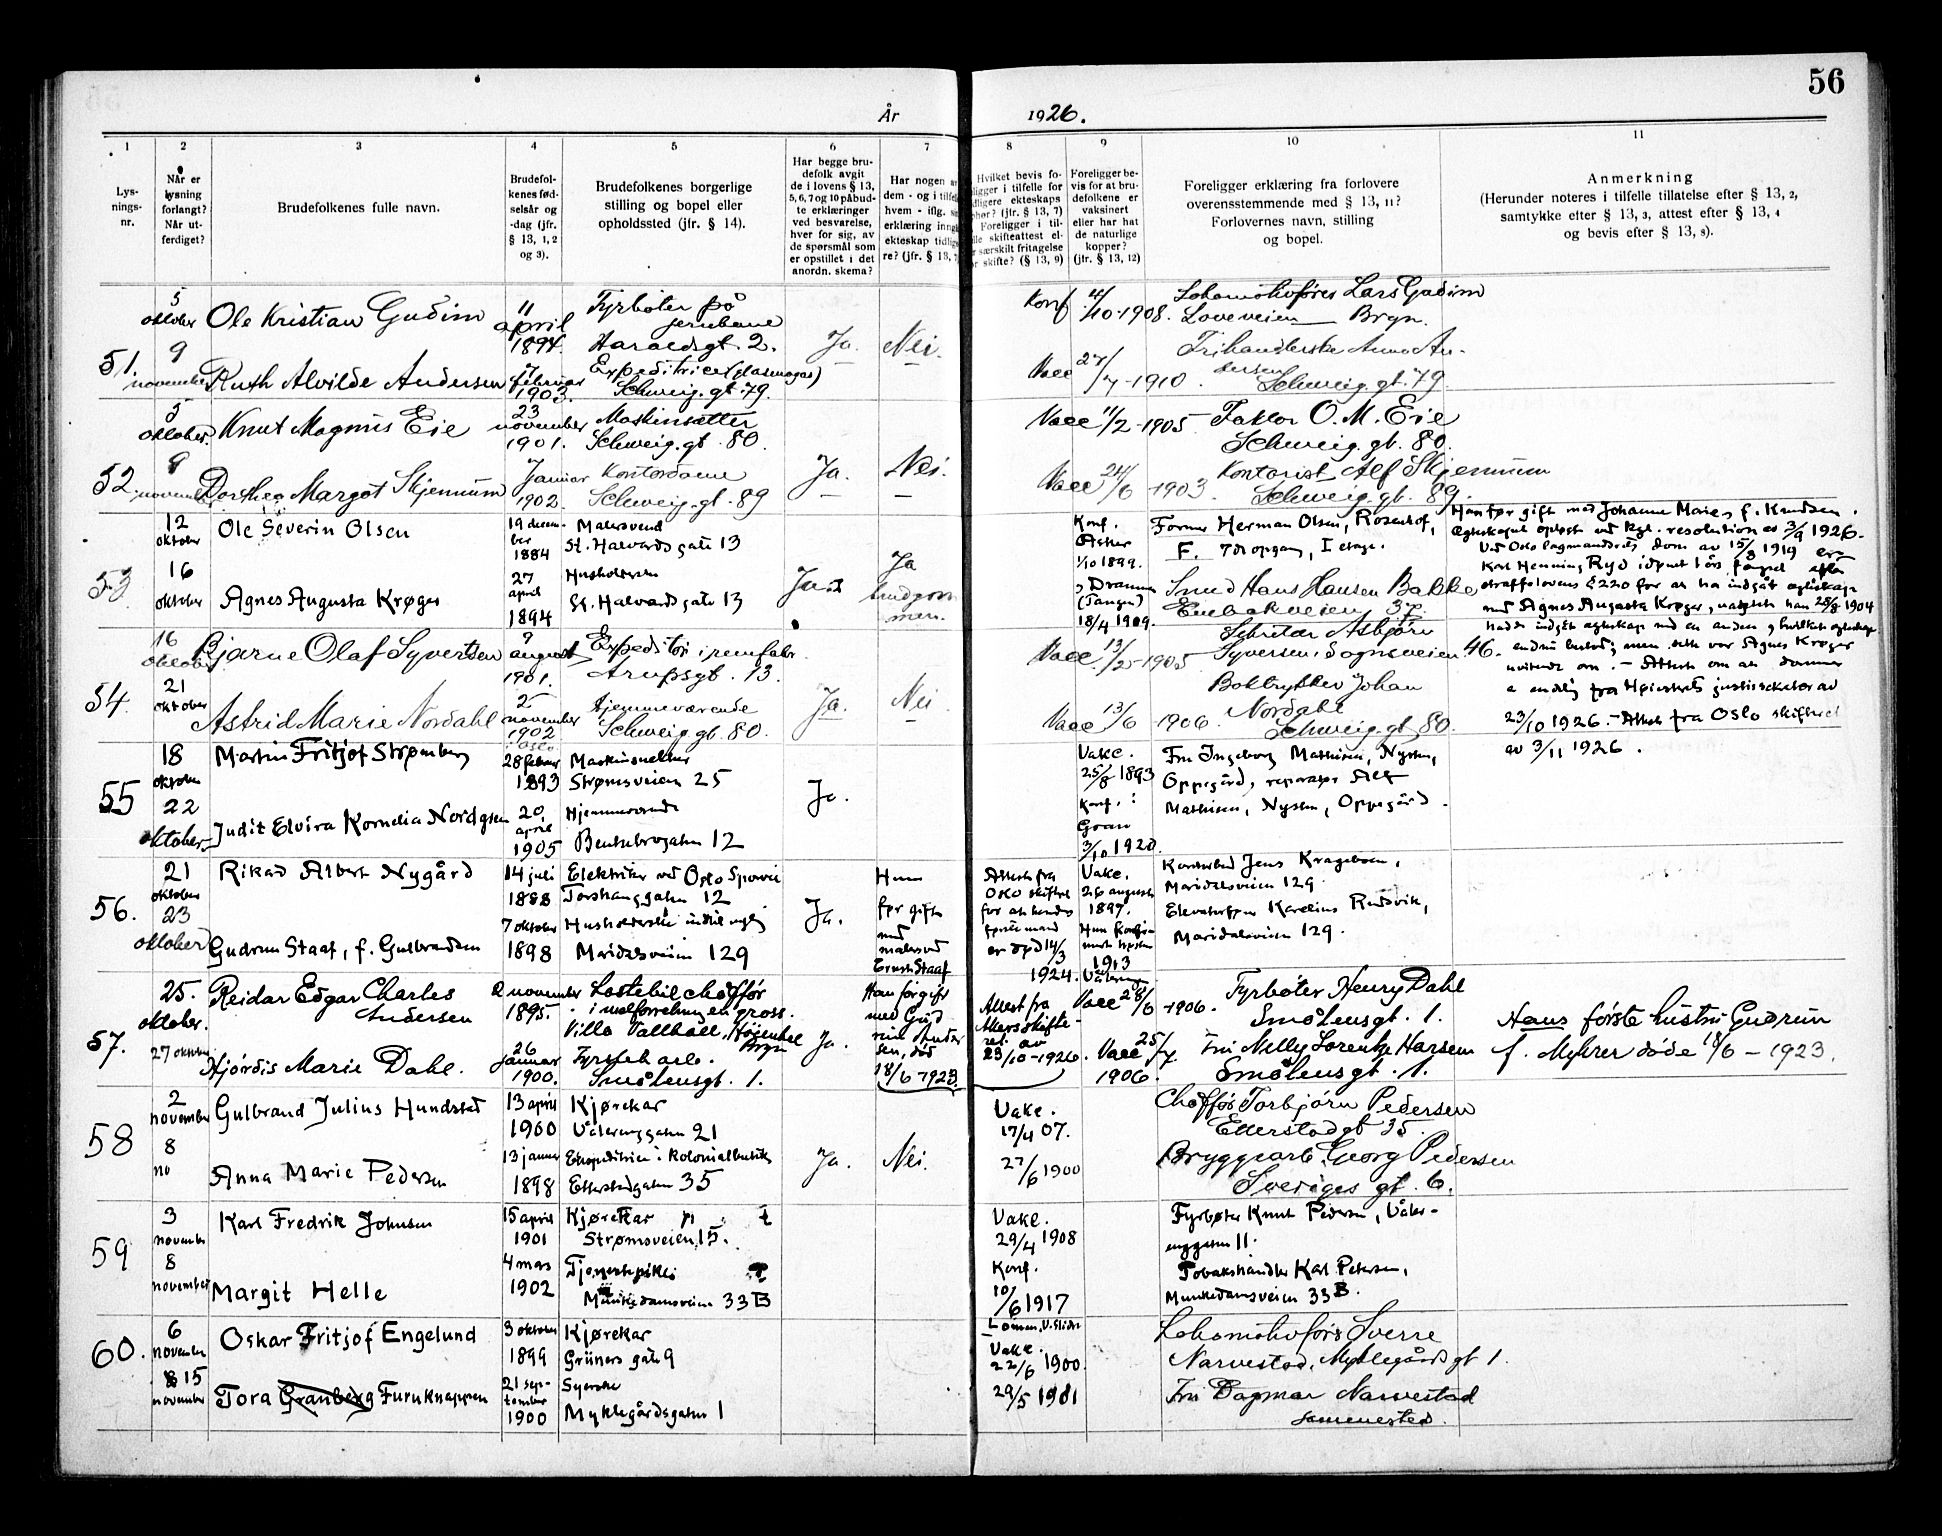 56
År 1926.
1 2 3 4 5 6 7 8 9 10 11
Lys-
nings-
nr.
Når er
lysning
forlangt?
Når ut-
ferdiget?
Brudefolkenes fulle navn.
Brudefol-
kenes fød-
selsår og
-dag (jfr.
§ 13, 1, 2
og 3).
Brudefolkenes borgerlige
stilling og bopel eller
opholdssted (jfr. § 14).
Har begge bru-
defolk avgit
de i lovens § 13,
5, 6, 7 og 10 påbud-
te erklæringer
ved besvarelse,
hver for sig, av
de spørsmål som
er opstillet i det
anordn. skema?
Har nogen a
dem - og i tilfel
hvem - iflg.
erklæring inngå
ekteskap tidlig
re? (jfr. § 13, 7
Hvilket bevis fo-
ligger i tilfelle for
dligere ekteskaps
phør? (jfr. § 13, 7)
Foreligger i til-
lle skifteattest el-
r særskilt fritagelse
r skifte? (§ 13, 9)
Foreligger be-
vis for at bru-
defolkene er
vaksinert
eller har hat
de naturlige
kopper?
(jfr. § 13, 12)
Foreligger erklæring fra forlovere
overensstemmende med § 13, 11?
Forlovernes navn, stilling
og bopel.
Anmerkning
(Herunder noteres i tilfelle tillatelse efter § 13, 2,
samtykke efter § 13, 3, attest efter § 13, 4
og bevis efter § 13, 8).
51.
5
oktober
9
november
Ole Kristian Gudim
11
april
1894.
Fyrbøter på
jernbane
Haraldsgt. 2.
Ja.
Nei.
Konf. 4/10-1908.
Lokomotivfører Lars Gudim
Loveveien Bryn.
Ruth Alvilde Andersen
7
februar
1903.
Expeditrice (glasmagas)
Schweig. gt. 79.
Vacc 27/7-1910.
Frihandlerske Anna An-
dersen
Schweig. gt. 79.
52.
5
oktober.
9
novemb.
Knut Magnus Eie
23
november
1901.
Maskinsetter
Schweig. gt. 80.
Ja.
Nei.
Vacc 11/2-1905
Faktor O. M. Eie
Schweig. gt. 80.
Dorthea Margot Skjennum
Januar
1902.
Kontordame
Schweig. gt. 89
Vacc 24/6-1903.
Kontorist Alf Skjennum
Schweig. gt. 89.
53
12
oktober
16
oktober
Ole Severin Olsen
19 decem-
ber
1884
Malersvend
St. Halvards gate 13
Konf.
Asker
1/10 1899.
Former Herman Olsen, Rosenhof,
F. 7de opgang, I etage.
Agnes Augusta Krøger
27
april
1894
Husholderske
St. Halvards gate 13
Ja
Ja
brudgom
men.
Drammen
(Tangen)
18/4 1909.
Smed Hans Hansen Bakke
Enebakveien 37
Han før gift med Johanne Marie f. Knudsen.
Egteskapet opløst ved kgl. resolution av 3/9 1926.
Ved Oslo lagmandsrets dom av 15/3 1919 er
Karl Henning Ryd idømt 1 års fængsel efter
straffelovens § 220 for at ha indgåt egteskap
med Agnes Augusta Krøger, uagtet han 28/8 1904
hadde indgåt egteskap med en anden, hvilket egteskap
endnu bestod; men dette var Agnes Krøger
uvitende om. - Attest om at dommen
e endelig fra Høiesterets justissekretær av
23/10 1926. - Attest fra Oslo skifteret
av 3/11 1926.
54.
16
oktober
21
oktober
Bjarne Olaf Syvertsen
9
august
1901.
Expeditør i renfabr.
Arupsgt. 13.
Ja.
Nei
Vacc. 13/2-1905
Sekretær Asbjørn
Syversen, Sognsveien 46.
Astrid Marie Nordahl
2
november
1902
i Oslo
Hjemmeværende
Schweig. gt. 80.
Vacc 13/6 1906.
Boktrykker Johan
Nordahl
Schweig. gt. 80.
55
18
oktober
22
oktober
Martin Fritjof Strømberg
28 februar
1893
Maskinsetter
Strømsveien 25
Ja.
Vakc.
25/8 1893
Fru Ingeborg Mathisen, Nysten,
Oppegård, reparatør Alf
Mathisen, Nysten, Oppegård.
Judit Elvira Kornelia Nordgren
20
april
1905
Hjemmeværende
Bentsebrogaten 12
Konf. i
Gran
3/10 1920.
56.
21
oktober
23
oktober
Rikad Albert Nygård
14 juli
1888
Elektriker ved Oslo Sporvei
Torshauggaten 12
Ja.
Hun
før gift
med
malersvd
Ernst Staaf
Attest fra
Oslo skifteret
for at hendes
første mand
er død 14/3
1924.
Vakc.
26 august
1897.
Hun konfir-
mert høsten
1913
Vålereng
Kontorbud Jens Krageboen,
Maridalsveien 129
Elevatorfører Karelius Rudsvik,
Maridalsveien 129.
Gudrun Staaf, f. Gulbrandsen
7 oktober
1898
Husholderske indtil nylig
Maridalsveien 129
57.
25.
oktober.
27 oktober
Reidar Edgar Charles
Andersen
2 november
1895.
Lastebilchaffør
i melforretning en gross.
Villa Vallhall, Høienhal
Bryn
Ja.
Han før gift
med Gud
run Ander
sen, død
18/6-1923.
Attest fra
Akers skifte-
ret av
23/10-1926.
Vacc 28/6-1906.
Fyrbøter Henry Dahl
Smålensgt. 1.
Hans første hustru Gudrun
f. Myhrer døde 18/6-1923.
Hjørdis Marie Dahl.
26
januar
1900.
Fyrstikarb.
Smålensgt. 1.
Vacc 25/7
1906.
Fru Nelly Lorentze Hansen
Smålensgt. 1.
58
2
november
8
no
Gulbrand Julius Hundstad
13 april
1900
Kjørekar
Vålerenggaten 21
Ja.
Nei.
Vakc.
17/4 07.
Chaffør Torbjørn Pedersen
Etterstadgt 35.
Anna Marie Pedersen
13 januar
1898
Ekspeditrise i kolonialbutik
Etterstadgaten 35
27/6 1900
Bryggearb. Georg Pedersen
Sveriges gt. 6.
59
3
november
8
november
Karl Fredrik Johnsen
15 april
1901
Kjørekar
Strømsveien 15.
Vakc.
29/4 1908
Fyrbøter Knut Pedersen, Våler-
enggaten 11.
Margit Helle
4 mars
1902
Tjenestepike
Munkedamsveien 33B
Konf.
10/6 1917
Tobakshandler Karl Petersen,
Munkedamsveien 33B.
60.
6
november
15
november
Oskar Fritjof Engelund
3 oktober
1899
Kjørekar
Grüners gate 9
Vakc.
22/6 1900.
Lokomotivfører Sverre
Narvestad, Myklegårds gt 1.
Tora Granberg Furuknappen
21 sep-
tember
1900
Syerske
Myklegårdsgaten 1
29/5 1901
Fru Dagmar Narvestad
sammesteds.